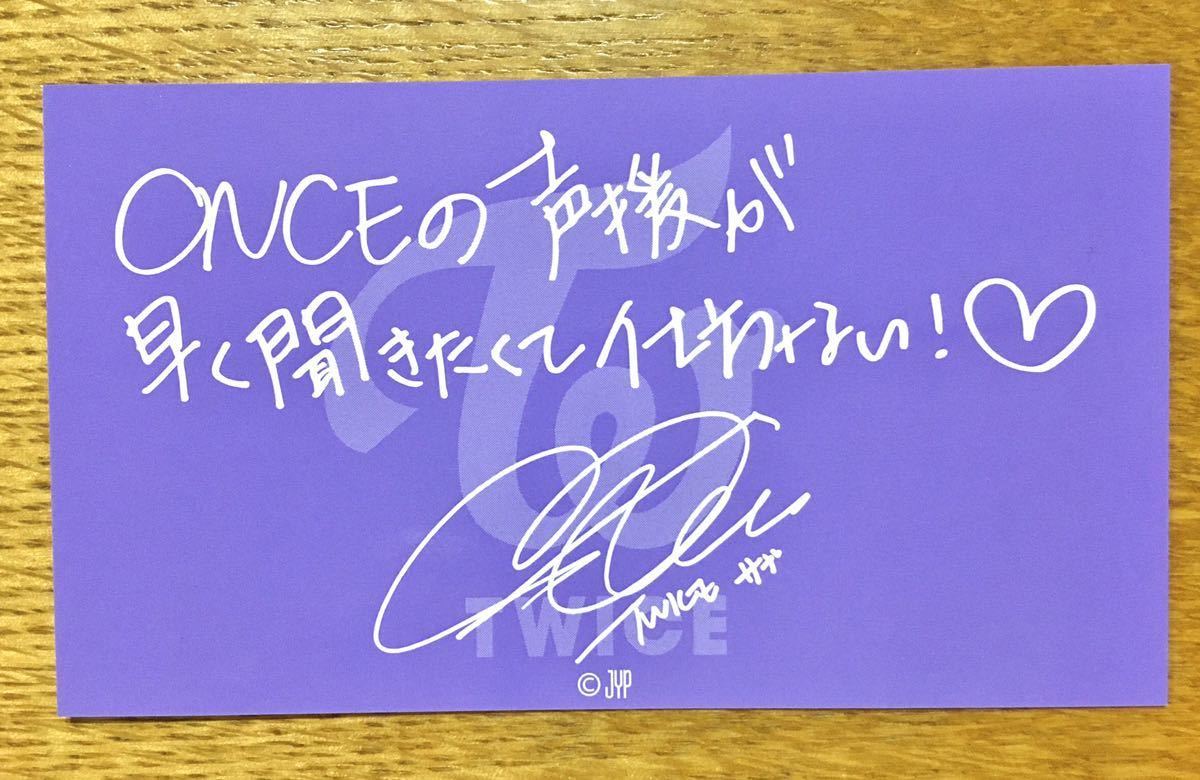 ONCEの声援が
早く聞きたくて仕方ない!♡
TWICE サナ
TWICE
© JYP